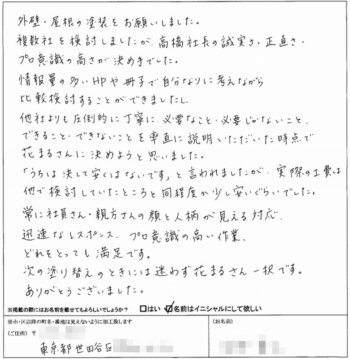 外壁・屋根の塗装をお願いしました。
複数社を検討しましたが、高橋社長の誠実さ・正直さ・
プロ意識の高さが決め手でした。
情報量の多いHPや冊子で自分なりに考えながら
比較検討することができましたし、
他社よりも圧倒的に丁寧に、必要なこと・必要じゃないこと、
できること・できないことを率直に説明いただいた時点で
花まるさんに決めようと思いました。
「うちは決して安くはないです」と言われましたが、実際の工費は
他で検討していたところと同程度か少し安いぐらいでした。
常に社員さん・親方さんの顔と人柄が見える対応、
迅速なレスポンス、プロ意識の高い作業、
どれをとっても満足です。
次の塗り替えのときには迷わず花まるさん一択です。
ありがとうございました。
※掲載の際にはお名前を載せてもよろしいでしょうか? □はい ☑名前はイニシャルにして欲しい
※市・区以降の町名・番地は見えないように加工致します
(ご住所) 〒
(お名前)
東京都世田谷区